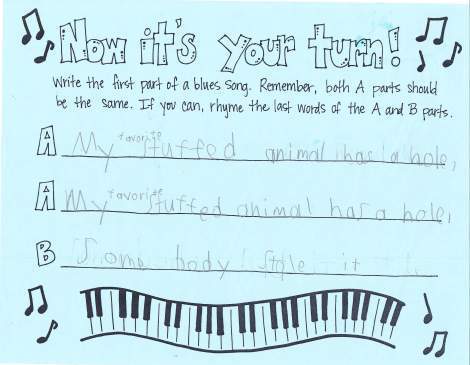 Now it's your turn!
Write the first part of a blues song. Remember, both A parts should
be the same. If you can, rhyme the last words of the A and B parts.
A My favorite stuffed animal has a hole,
A My favorite stuffed animal has a hole,
B Some body stole it